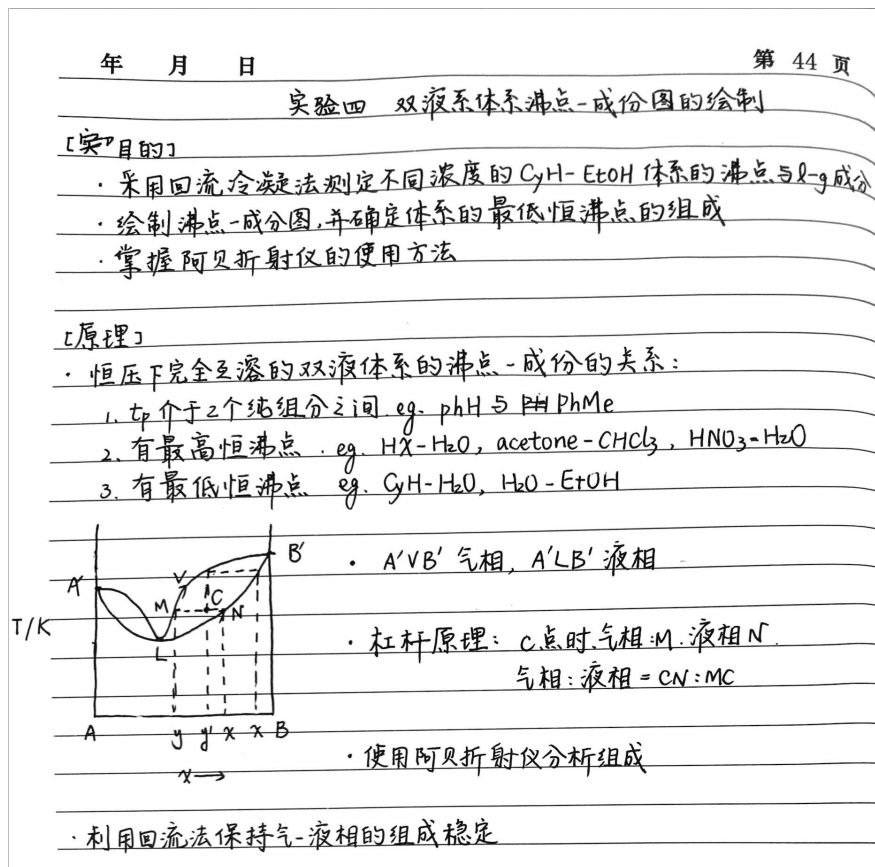 年 月 日 第 44 页
实验四 双液系体系沸点-成份图的绘制
[实"目的]
· 采用回流冷凝法测定不同浓度的CyH-EtOH体系的沸点与l-g成分
· 绘制沸点-成分图,并确定体系的最低恒沸点的组成
· 掌握阿贝折射仪的使用方法
[原理]
· 恒压下完全互溶的双液体系的沸点-成份的关系:
1. tp介于2个纯组分之间 eg. phH与PhMe
2. 有最高恒沸点. eg. HX-H2O, acetone-CHCl3, HNO3-H2O
3. 有最低恒沸点 eg. CyH-H2O, H2O-EtOH
B'
· A'VB' 气相, A'LB' 液相
A'
V
M C N
T/K
L
· 杠杆原理: C点时,气相:M. 液相N.
气相:液相=CN:MC
A y y' x x B
x→
· 使用阿贝折射仪分析组成
· 利用回流法保持气-液相的组成稳定